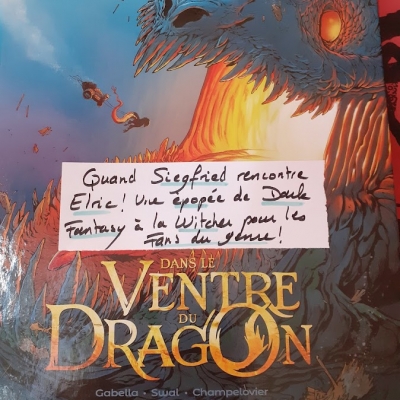 Quand Siegfried rencontre
Elric! Une épopée de Dark
Fantasy à la Witcher pour les
Fans du genre!
DANS LE
VENTRE
DU
DRAGON
Gabella • Swal • Champelovier